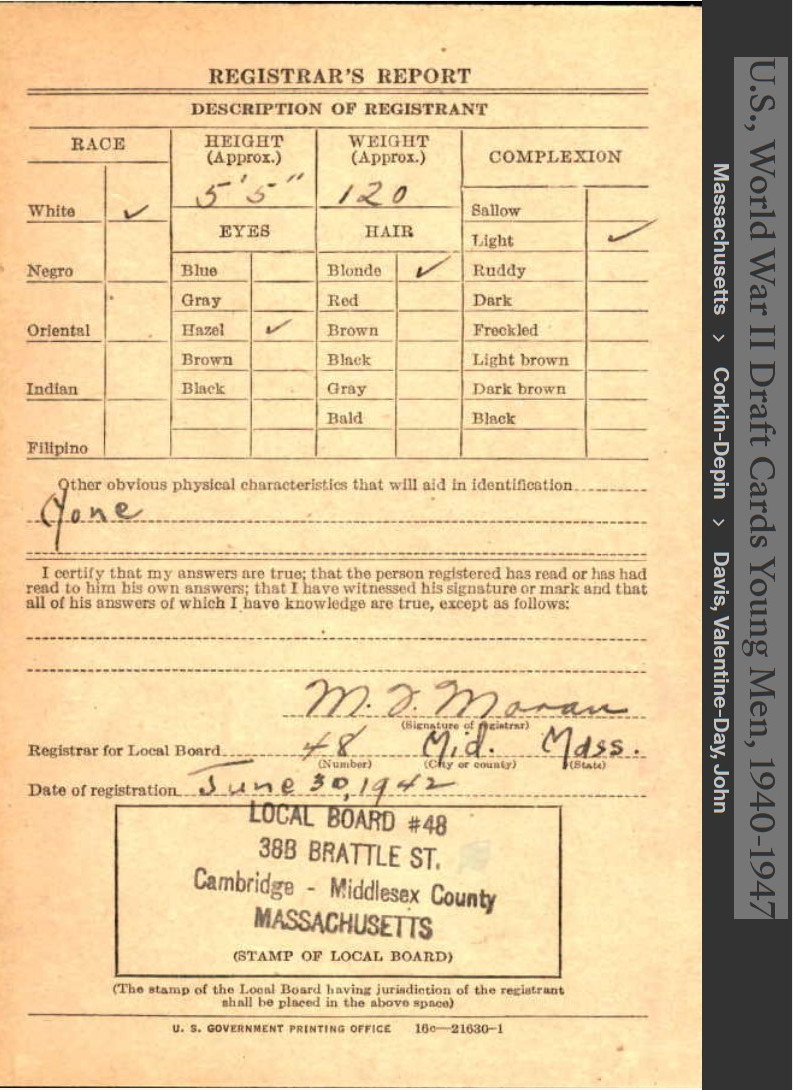 REGISTRAR'S REPORT
DESCRIPTION OF REGISTRANT
RACE
HEIGHT
(Approx.)
WEIGHT
(Approx.)
COMPLEXION
5' 5"
120
White ✓
Sallow
EYES
HAIR
Light ✓
Negro
Blue
Blonde ✓
Ruddy
Gray
Red
Dark
Oriental
Hazel ✓
Brown
Freckled
Brown
Black
Light brown
Indian
Black
Gray
Dark brown
Bald
Black
Filipino
Other obvious physical characteristics that will aid in identification
None
I certify that my answers are true; that the person registered has read or has had
read to him his own answers; that I have witnessed his signature or mark and that
all of his answers of which I have knowledge are true, except as follows:
M. J. Moran
(Signature of registrar)
Registrar for Local Board 48 Mid. Mass.
(Number) (City or county) (State)
Date of registration June 30, 1942
LOCAL BOARD #48
38B BRATTLE ST.
Cambridge - Middlesex County
MASSACHUSETTS
(STAMP OF LOCAL BOARD)
(The stamp of the Local Board having jurisdiction of the registrant
shall be placed in the above space)
U. S. GOVERNMENT PRINTING OFFICE 16c—21630-1
U.S., World War II Draft Cards Young Men, 1940-1947
Massachusetts > Corkin-Depin > Davis, Valentine-Day, John